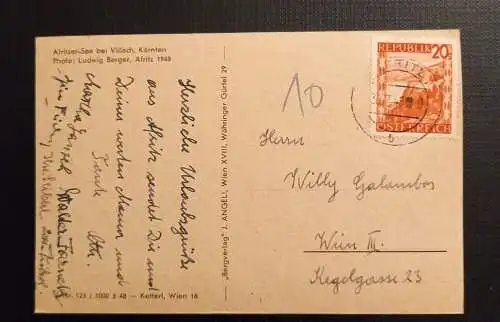 Afritzer-See bei Villach, Kärnten
Photo: Ludwig Berger, Afritz 1948
Herzliche Urlaubsgrüße
aus Afritz sendet Dir und
Deiner werten Mama und
Tante
Nr. 123 / 1000 5 48 — Ketterl, Wien 18
„Bergverlag“, J. ANGELI, Wien XVIII, Währinger Gürtel 29
10
REPUBLIK 20
ÖSTERREICH
Herrn
Willy Galambos
Wien III.
Kegelgasse 23